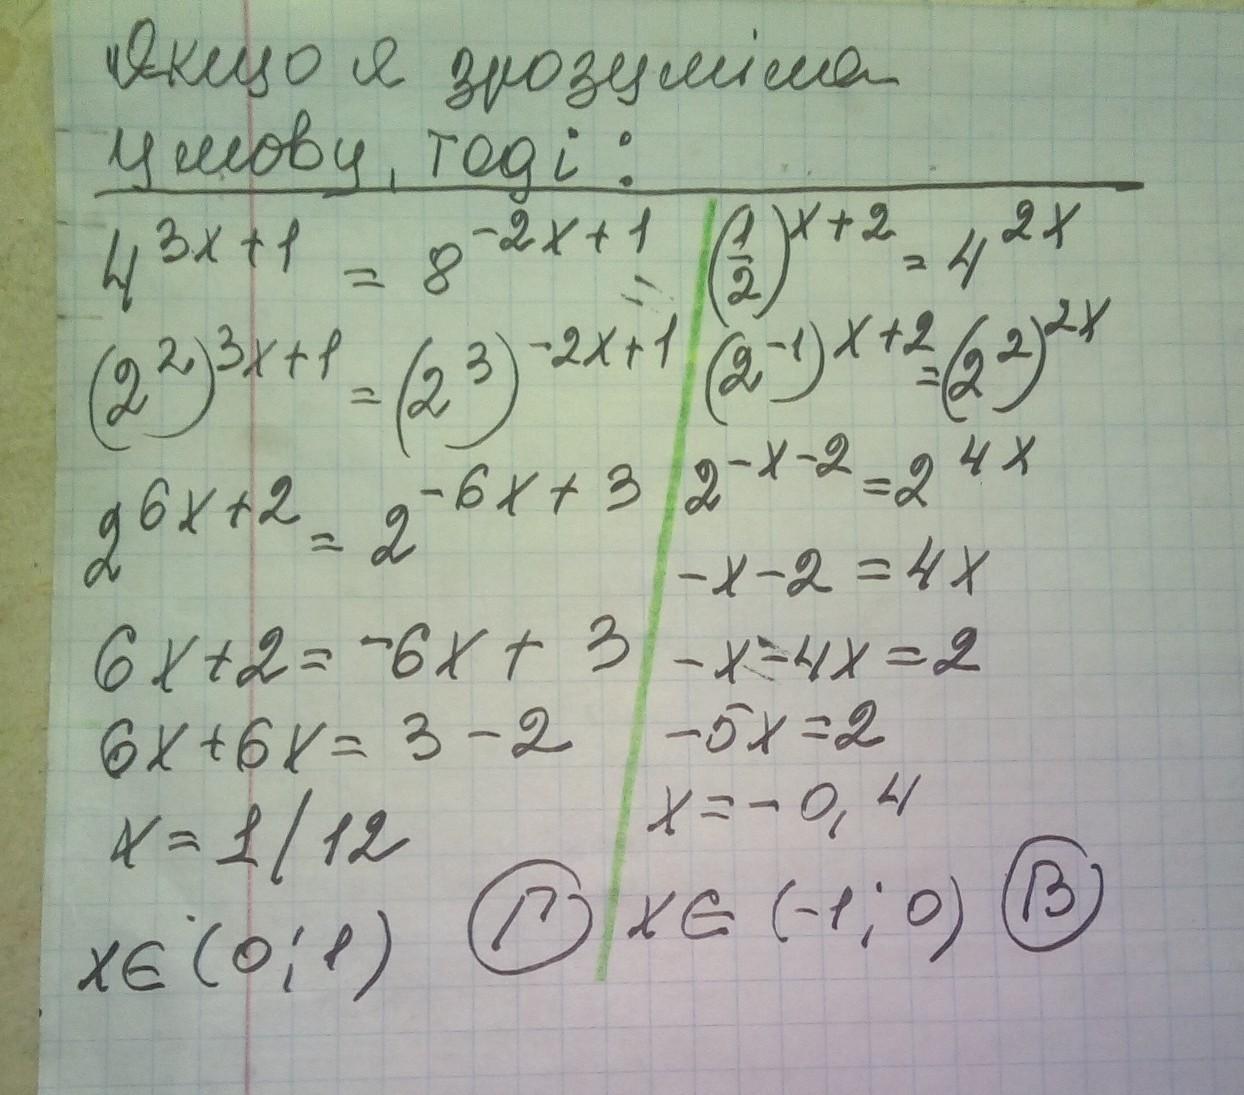 Якщо я зрозуміла
умову, тоді:
4^{3x+1} = 8^{-2x+1}
(2^2)^{3x+1} = (2^3)^{-2x+1}
2^{6x+2} = 2^{-6x+3}
6x+2 = -6x+3
6x+6x = 3-2
x = 1/12
x∈(0;1) Г
(1/2)^{x+2} = 4^{2x}
(2^{-1})^{x+2} = (2^2)^{2x}
2^{-x-2} = 2^{4x}
-x-2 = 4x
-x-4x = 2
-5x = 2
x = -0,4
x∈(-1;0) В